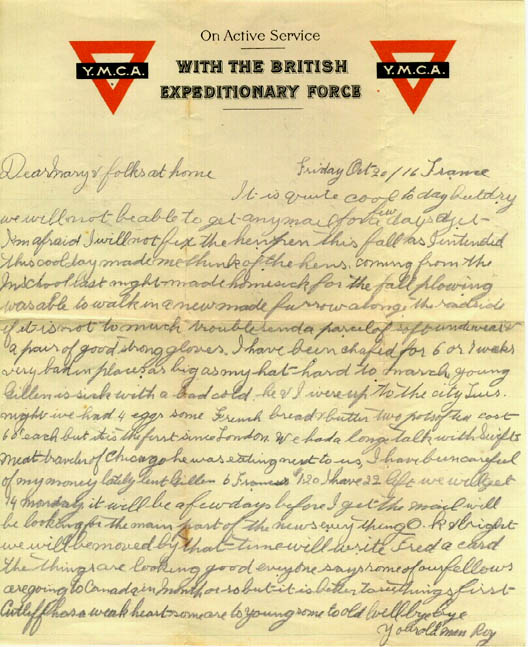 On Active Service
Y.M.C.A. WITH THE BRITISH Y.M.C.A.
EXPEDITIONARY FORCE
Dear Mary & folks at home Friday Oct 20/16 France
It is quite cool today but dry
we will not be able to get any mail for a few days yet
I'm afraid I will not fix the hen pen this fall as I intended
this cool day made me think of the hens. coming from the
last night made homesick for the fall plowing
was able to walk in a new made furrow along the roadside
if it is not to much trouble send a parcel of soft underwear &
a pair of good strong gloves. I have been chafed for 6 or 7 weeks
very bad in places as big as my hat - hard to march. young
Gillen is sick with a bad cold. he & I were up to the city Tues.
night we had 4 eggs some French bread & butter two pots of tea cost
60¢ each but it is the first since London We had a long talk with Swifts
meat traveler of Chicago he was eating next to us, I have been careful
of my money lately lent Gillen 6 Francs $1.20 I have 22 left we will get
14 monday it will be a few days before I get the mail will
be looking for the main part of the news every thing O.K. & bright
we will be moved by that time will write Fred a card
the things are looking good everyone says some of our fellows
are going to Canada in month or so but it is better to see things first
Cutleff has a weak heart some are to young some to old Well bye bye
Your old man Roy